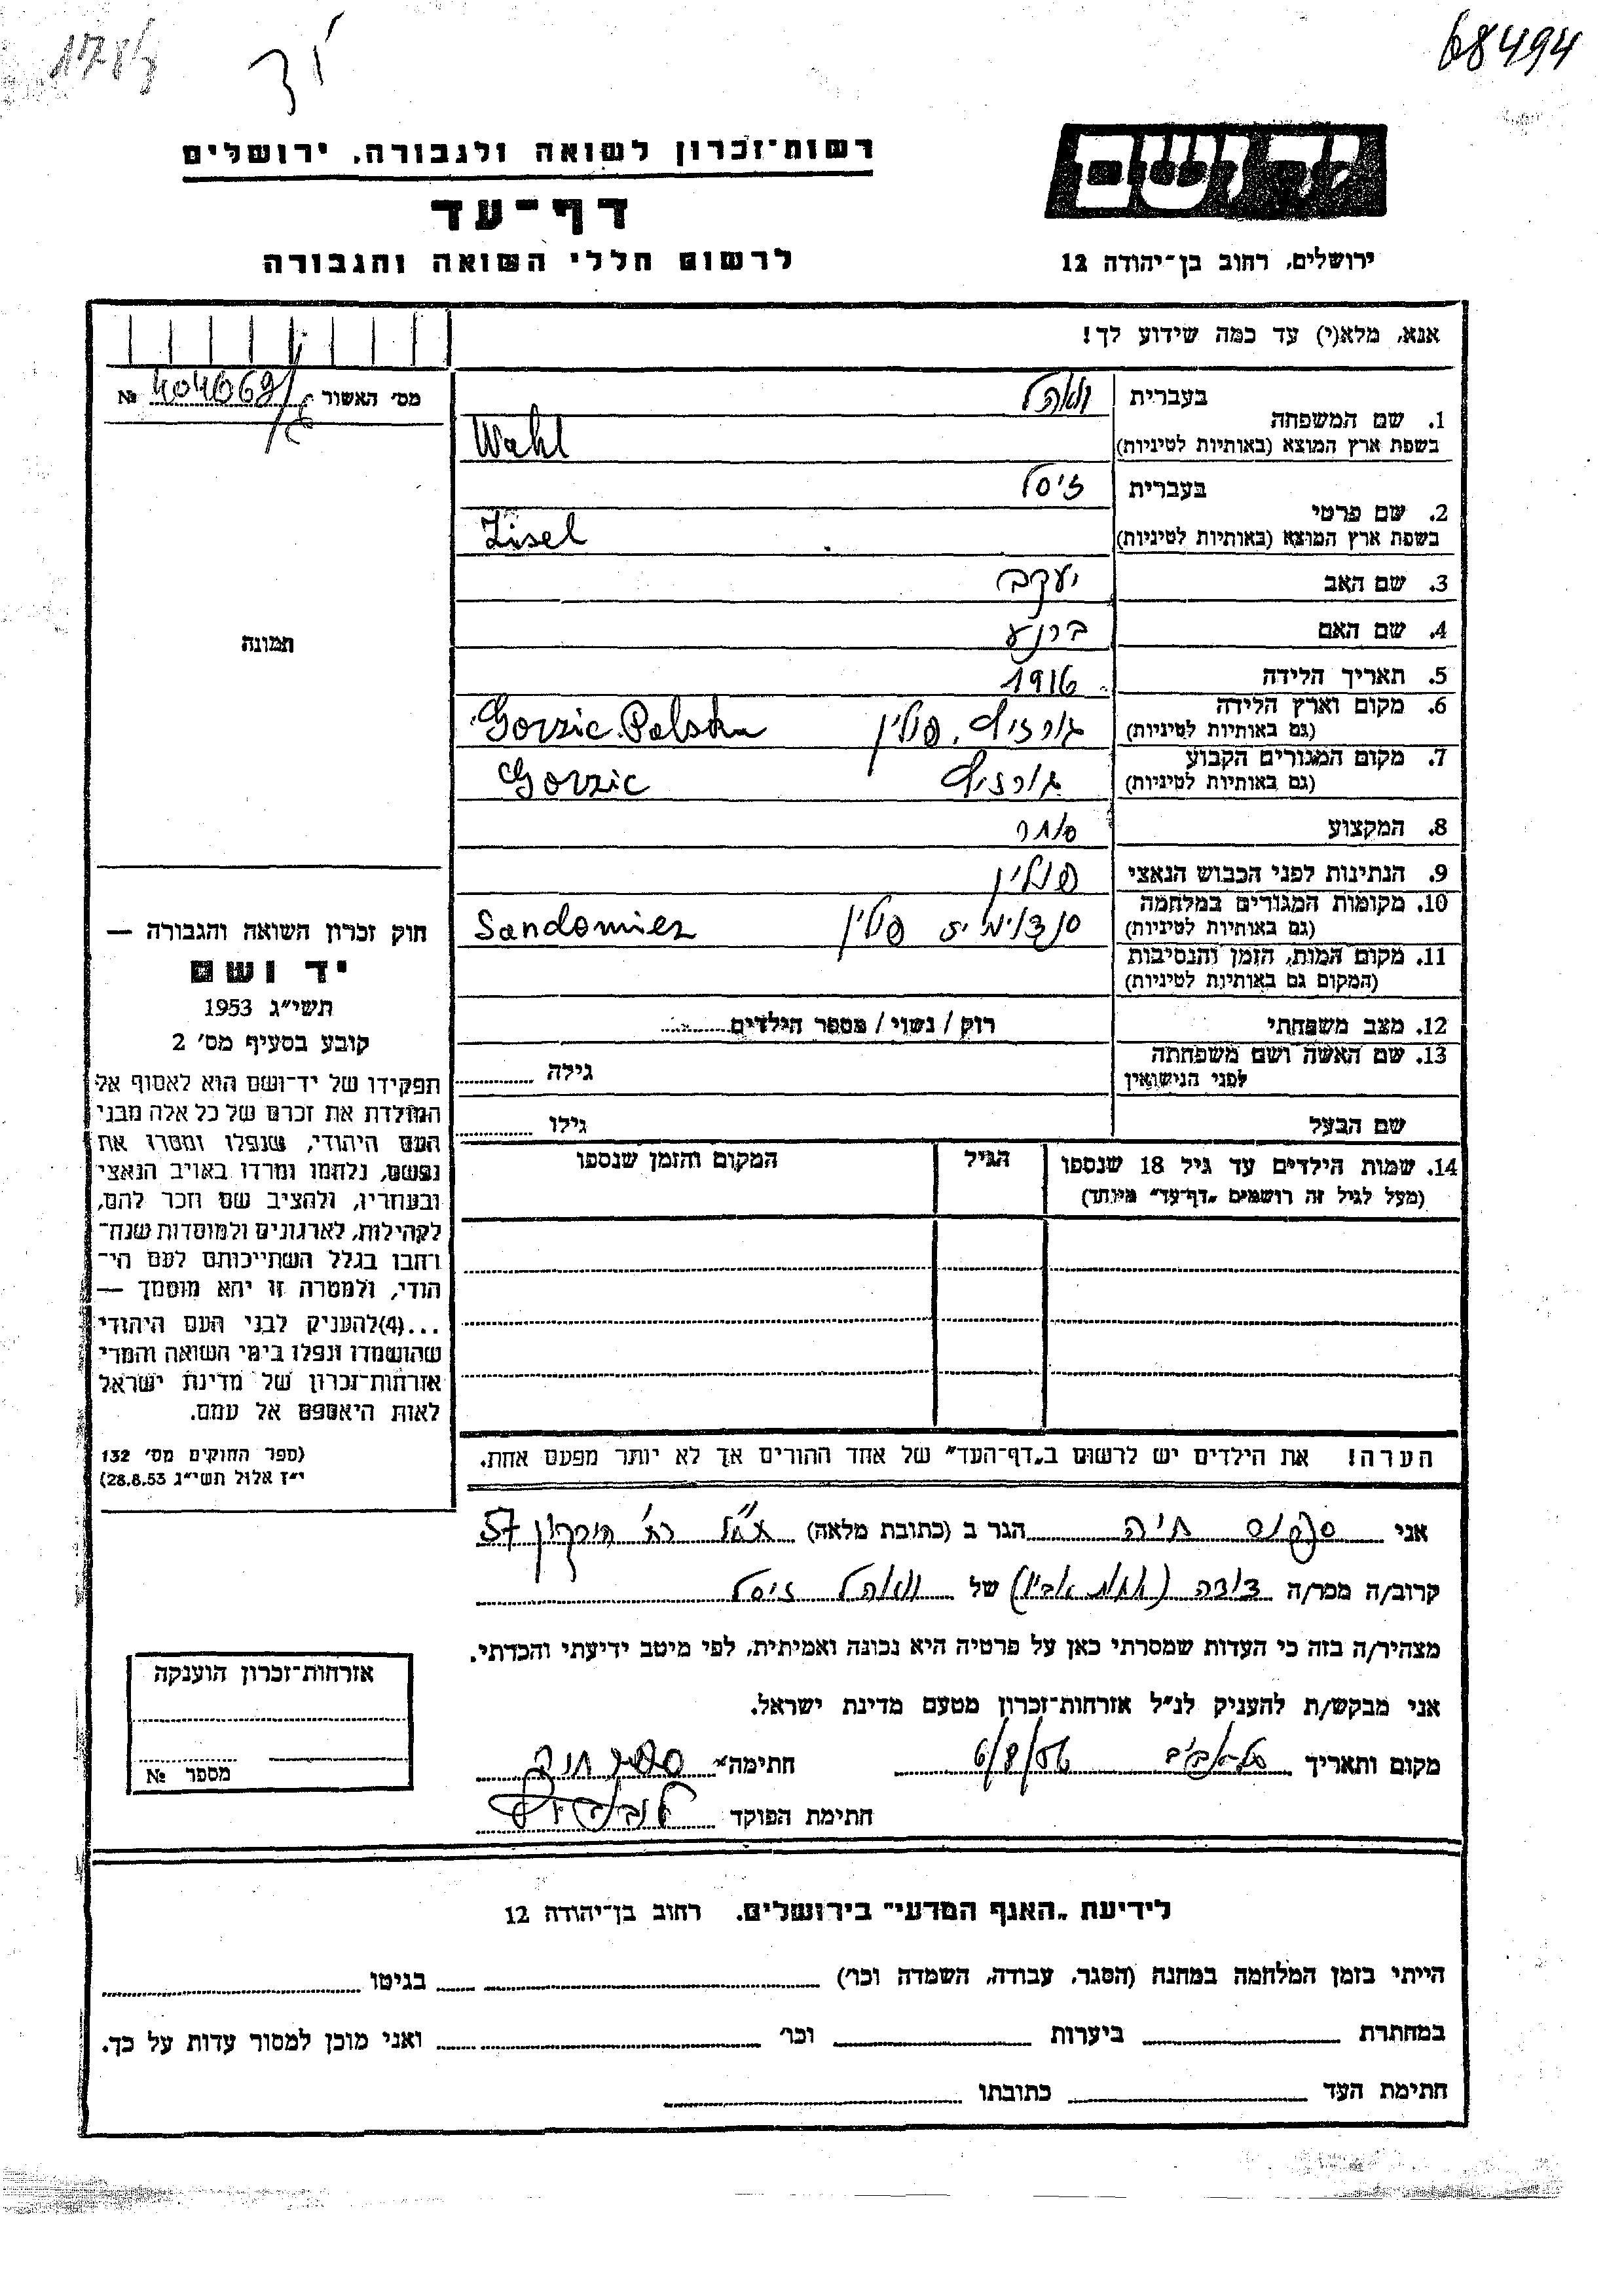 68494
יד ושם
רשות־זכרון לשואה ולגבורה, ירושלים
דף־עד
לרשום חללי השואה והגבורה
ירושלים, רחוב בן־יהודה 12
אנא, מלא(י) עד כמה שידוע לך!
מס׳ האשור № 404669
1. שם המשפחה
בעברית וואהל
בשפת ארץ המוצא (באותיות לטיניות) Wahl
2. שם פרטי
בעברית זיסל
בשפת ארץ המוצא (באותיות לטיניות) Zisel
3. שם האב יעקב
4. שם האם
5. תאריך הלידה 1916
6. מקום וארץ הלידה (גם באותיות לטיניות) גורזיץ, פולין Gorzic. Polska
7. מקום המגורים הקבוע (גם באותיות לטיניות) גורזיץ Gorzic
8. המקצוע סוחר
9. הנתינות לפני הכבוש הנאצי פולין
10. מקומות המגורים במלחמה (גם באותיות לטיניות) פולין Sandomiez
11. מקום המות, הזמן והנסיבות (המקום גם באותיות לטיניות)
12. מצב משפחתי רוק / נשוי / מספר הילדים
13. שם האשה ושם משפחתה לפני הנישואין גילה
שם הבעל גילו
14. שמות הילדים עד גיל 18 שנספו
(מעל לגיל זה רושמים „דף־עד״ מיוחד)
הגיל
המקום והזמן שנספו
הערה! את הילדים יש לרשום ב„דף־העד״ של אחד ההורים אך לא יותר מפעם אחת.
תמונה
חוק זכרון השואה והגבורה —
יד ושם
תשי״ג 1953
קובע בסעיף מס׳ 2
תפקידו של יד־ושם הוא לאסוף אל
המולדת את זכרם של כל אלה מבני
העם היהודי, שנפלו ומסרו את
נפשם, נלחמו ומרדו באויב הנאצי
ובעוזריו, ולהציב שם וזכר להם,
לקהילות, לארגונים ולמוסדות שנח־
רבו בגלל השתייכותם לעם הי־
הודי, ולמטרה זו יהא מוסמך —
...(4)להעניק לבני העם היהודי
שהושמדו ונפלו בימי השואה והמרי
אזרחות־זכרון של מדינת ישראל
לאות היאספם אל עמם.
(ספר החוקים מס׳ 132
י״ז אלול תשי״ג 28.8.53)
אני חיה הגר ב (כתובת מלאה) ת״א רח׳ הירקון 57
קרוב/ה מכר/ה דודה (אחות אביו) של וואהל זיסל
מצהיר/ה בזה כי העדות שמסרתי כאן על פרטיה היא נכונה ואמיתית, לפי מיטב ידיעתי והכרתי.
אני מבקש/ת להעניק לנ״ל אזרחות־זכרון מטעם מדינת ישראל.
מקום ותאריך תל־אביב 6/8/56 חתימה
חתימת הפוקד
אזרחות־זכרון הוענקה
מספר №
לידיעת „האגף המדעי״ בירושלים, רחוב בן־יהודה 12
הייתי בזמן המלחמה במחנה (הסגר, עבודה, השמדה וכו׳) בגיטו
במחתרת ביערות וכו׳ ואני מוכן למסור עדות על כך.
חתימת העד כתובתו